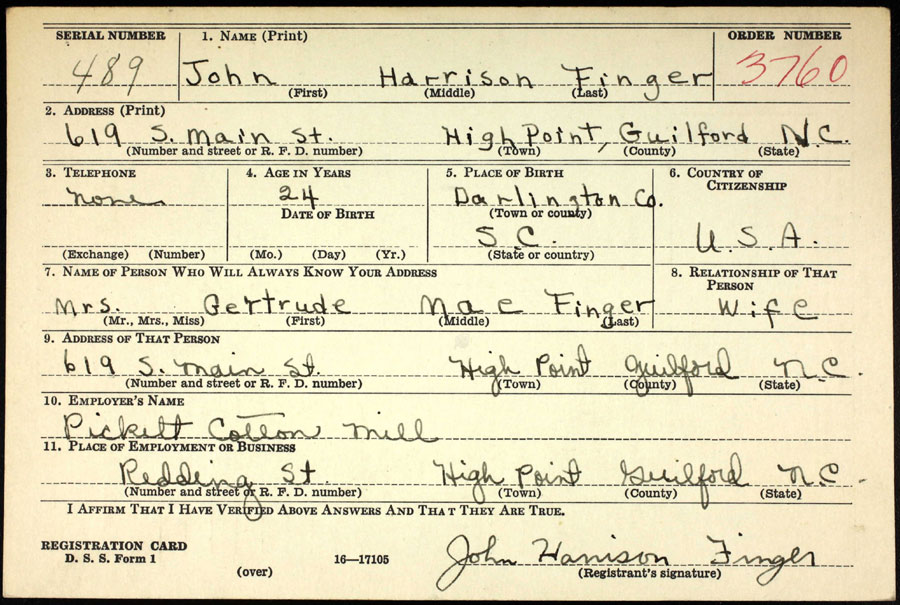 SERIAL NUMBER 1. NAME (Print) ORDER NUMBER
489 John Harrison Finger 3760
(First) (Middle) (Last)
2. ADDRESS (Print)
619 S. Main St. High Point, Guilford N.C.
(Number and street or R. F. D. number) (Town) (County) (State)
3. TELEPHONE 4. AGE IN YEARS 5. PLACE OF BIRTH 6. COUNTRY OF CITIZENSHIP
None 24 Darlington Co.
DATE OF BIRTH (Town or county)
S.C. U.S.A.
(Exchange) (Number) (Mo.) (Day) (Yr.) (State or country)
7. NAME OF PERSON WHO WILL ALWAYS KNOW YOUR ADDRESS 8. RELATIONSHIP OF THAT PERSON
Mrs. Gertrude Mae Finger Wife
(Mr., Mrs., Miss) (First) (Middle) (Last)
9. ADDRESS OF THAT PERSON
619 S. Main St. High Point Guilford N.C.
(Number and street or R. F. D. number) (Town) (County) (State)
10. EMPLOYER'S NAME
Pickett Cotton Mill
11. PLACE OF EMPLOYMENT OR BUSINESS
Redding St. High Point Guilford N.C.
(Number and street or R. F. D. number) (Town) (County) (State)
I AFFIRM THAT I HAVE VERIFIED ABOVE ANSWERS AND THAT THEY ARE TRUE.
REGISTRATION CARD
D. S. S. Form 1 16—17105 John Harrison Finger
(over) (Registrant's signature)